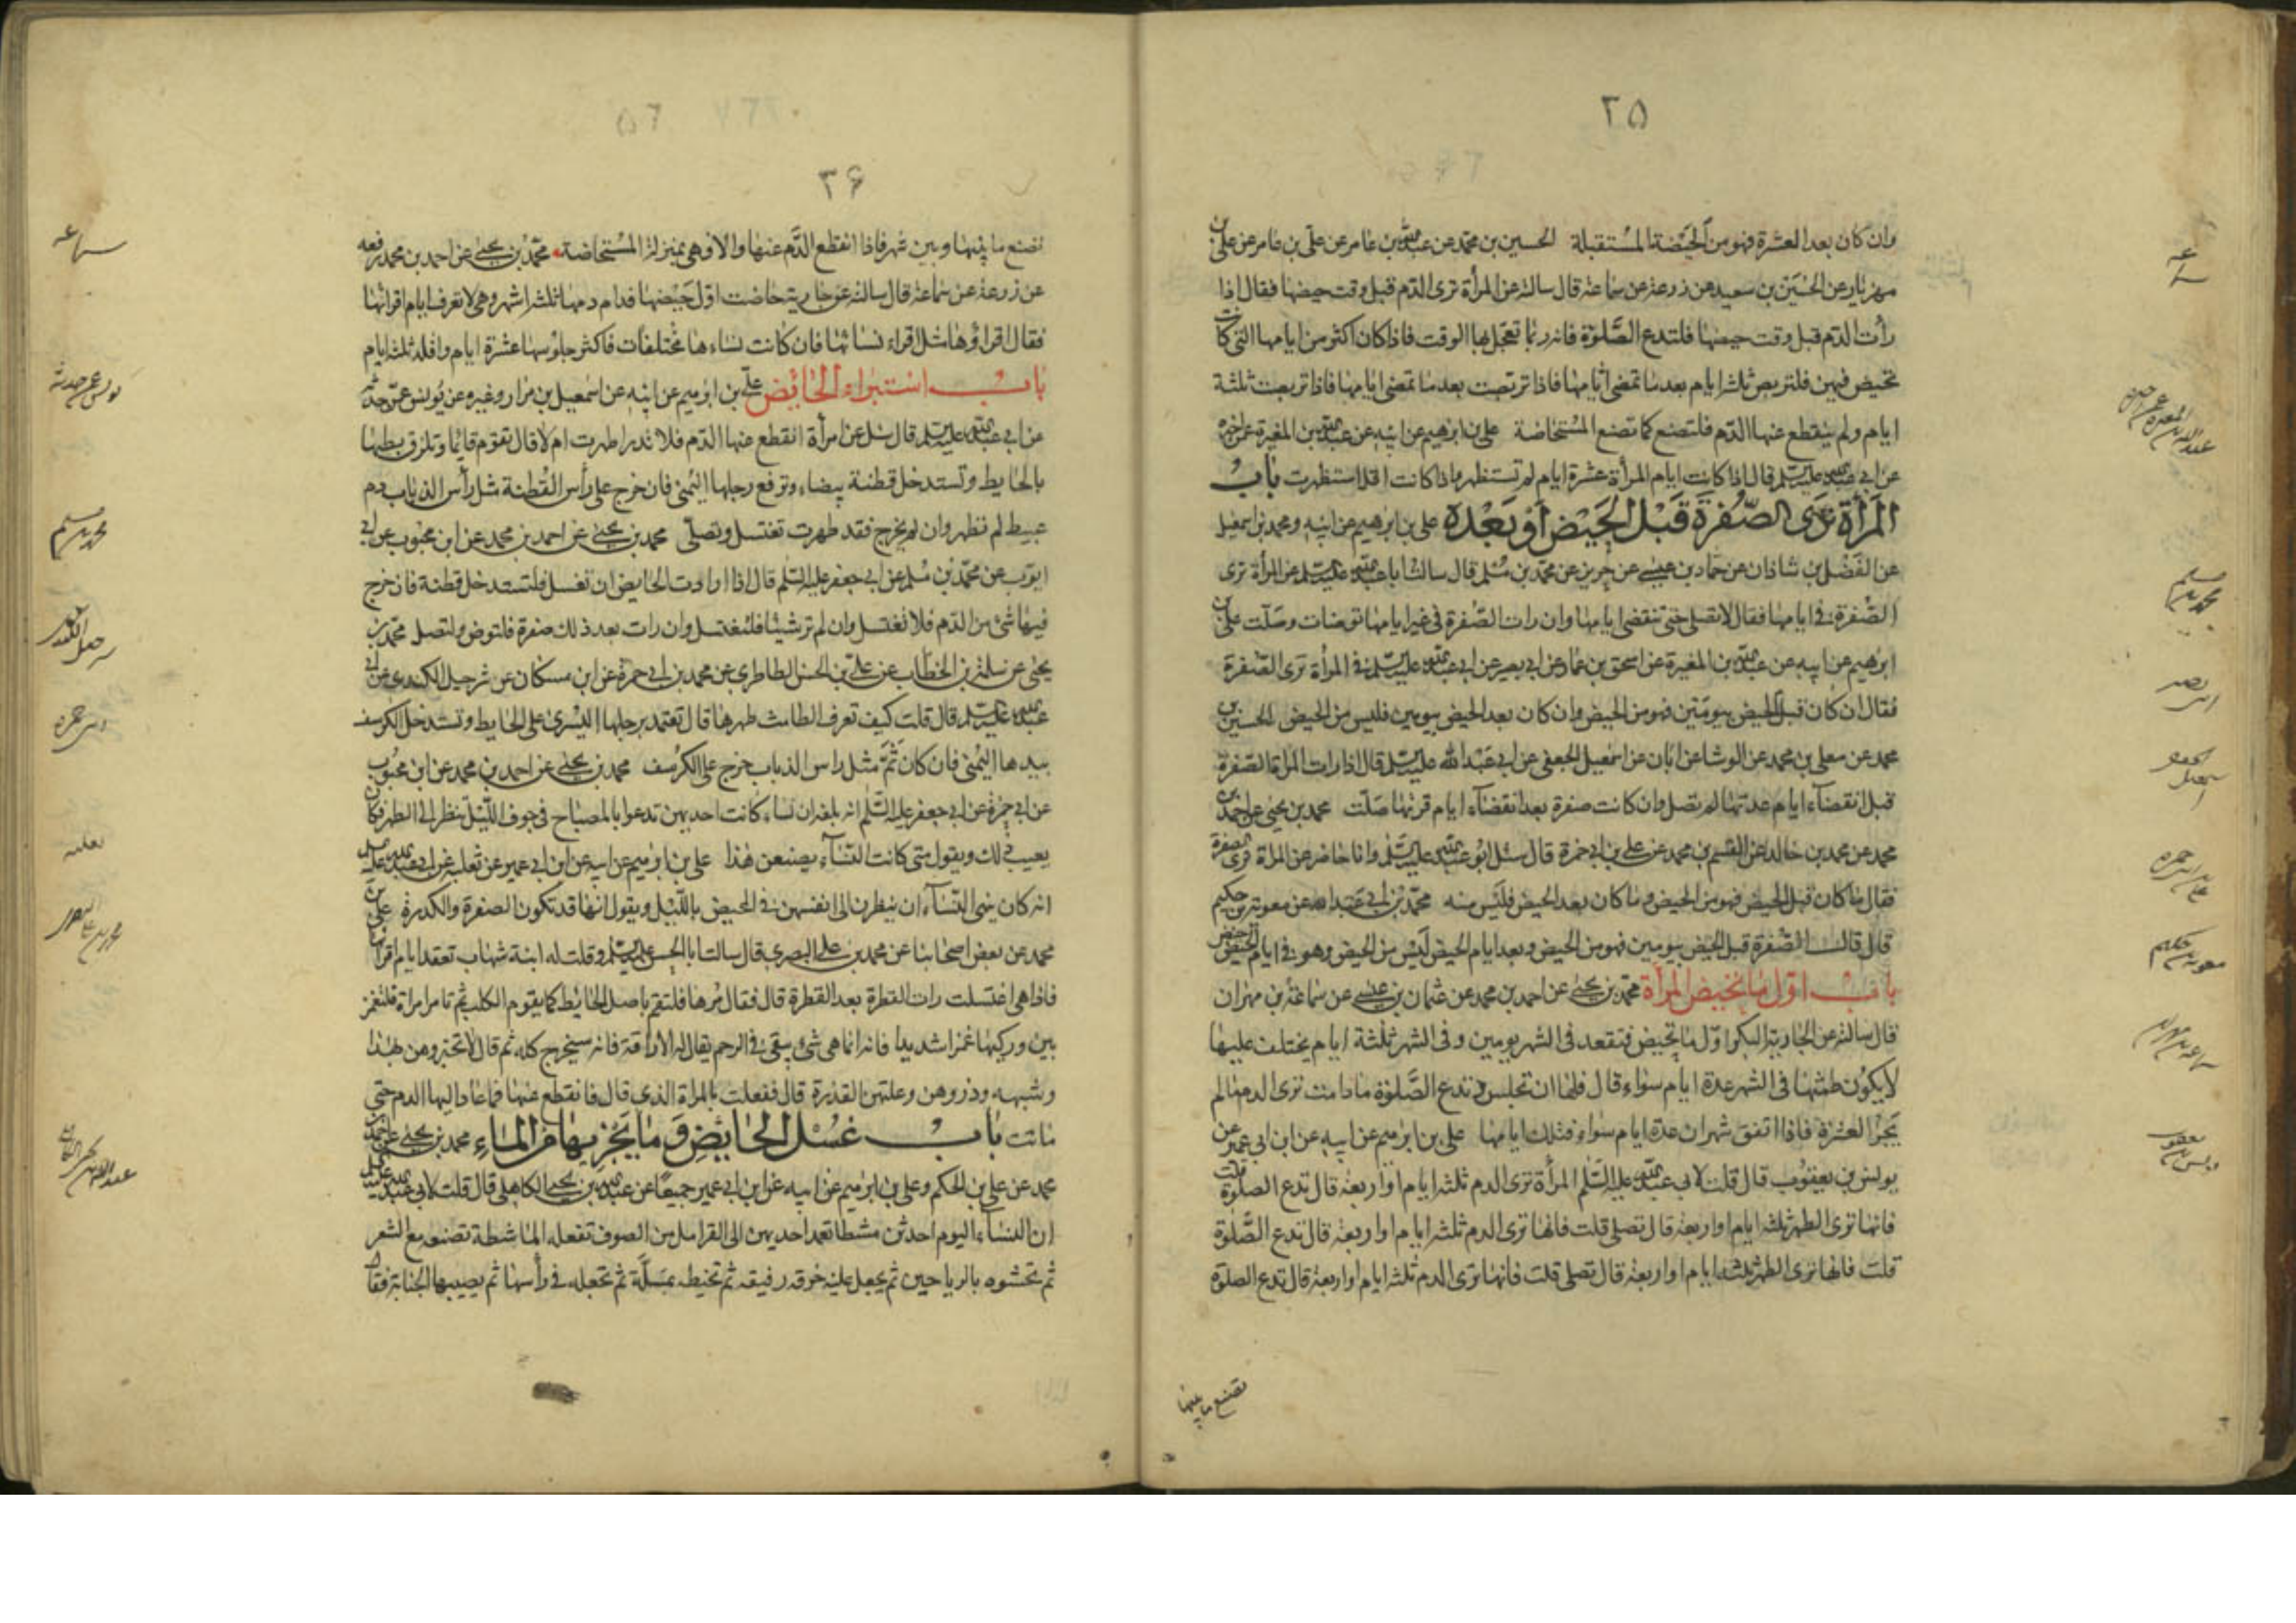 ٢٥
وان كان بعد العشرة فهو من الحَيضة المُستقبلة الحسين بن محمّد عن عبد الله بن عامر عن علّي بن عامر عن علّي بن
مهزيار عن الحُسَين بن سعيد عن زرعة عن سماعة قال سالته عن المرأة ترى الدّم قبل وقت حيضها فقال اذا
رأت الدّم قبل وقت حيضها فلتدع الصَّلوة فانه ربّما تعجّل بها الوقت فاذا كان اكثر من ايامها التى كانت
تحيض فيهن فلتربص ثلثة ايام بعد ما تمضى ايّامها فاذا تربصت بعد ما تمضى ايّامها فاذا تربصت ثلثة
ايام ولم ينقطع عنها الدّم فلتصنع كما تصنع المُستحاضة على بن ابرهيم عن ابيه عن عبد الله بن المغيرة عمن اخبره
عن ابى عبد الله عليه السلم قال اذا كانت ايام المرأة عشرة ايام لم تستظهر واذا كانت اقل استظهرت بابُ
المَرأة تَرَى الصّفرَةَ قَبْلَ الحَيْضِ اَوْ بَعْدَهُ على بن ابرهيم عن ابيه ومحمد بن اسمعيل
عن الفَضْل بن شاذان عن حمّاد بن عيسى عن حريز عن محمّد بن مُسلم قال سالتُ ابا عبد الله عليه السلم عن المرأة ترى
الصُّفرة فى ايامها فقال لا تصلى حتى تنقضى ايامها وان رات الصّفرة فى غير ايامها توضات وصَلّت على بن
ابرهيم عن ابيه عن عبد الله بن المغيرة عن اسحق بن عمّار عن ابى بصير عن ابى عبد الله عليه السلم فى المرأة ترى الصّفرة
فقال ان كان قبل الحيض بيومَين فهو من الحيض وان كان بعد الحيض بيومين فليس من الحيض الحسين بن
محمد عن معلى بن محمد عن الوشا عن ابان عن اسمعيل الجعفى عن ابى عَبْد الله عليه السلم قال اذا رات المراة الصّفرة
قبل انقضآء ايام عدتها لم تصل وان كانت صفرة بعد انقضآء ايام قرئها صَلّت محمد بن يحيى عن احمد بن
محمد عن محمد بن خالد عن القسم بن محمد عن على بن ابى حمزة قال سئل ابو عبد الله عليه السلم وانا حاضر عن المراة ترى الصفرة
فقال ما كان قبل الحيض فهو من الحيض وما كان بعد الحيض فليس منه محمّد بن ابى عبد الله عن معوية بن حكيم
قال قال الصُّفرة قبل الحيض بيومين فهو من الحيض وبعد ايام الحيض لَيْس من الحيض وهو فى ايام الحيض حيض
بابُ اوّل ما تحيض المرأة محمّد بن يحيى عن احمد بن محمد عن عثمان بن عيسى عن سماعة بن مهران
قال سالته عن الجارية البكر اوّل ما تحيض فتقعد فى الشهر يومين وفى الشهر ثلثة ايام يختلف عليها
لا يكون طمثها فى الشهر عدة ايام سواء قال فلها ان تجلس وتدع الصَّلوة ما دامت ترى الدم ما لم
يَجُز العشرة فاذا اتفق شهران عدة ايام سواء فتلك ايامها على بن ابرهيم عن ابيه عن ابن ابى عمير عن
يونس بن يعقوب قال قلت لابى عبد الله عليه السَّلم المرأة ترى الدم ثلثة ايام او اربعة قال تدع الصلوة قلت
فانها ترى الطهر ثلثة ايام او اربعة قال تصلى قلت فانها ترى الدم ثلثة ايام او اربعة قال تدع الصَّلوة
قلت فانها ترى الطهر ثلثة ايام او اربعة قال تصلى قلت فانها ترى الدم ثلثة ايام او اربعة قال تدع الصلوة
تصنع ما بينها
سماعه
محمد بن مسلم
ابى بصير
اسمعيل الجعفى
على بن ابى حمزه
معوية بن حكيم
سماعه بن مهران
يونس بن يعقوب
٣۶
تصنع ما بينها وبين شهر فاذا انقطع الدَّم عنها والا فهى بمنزلة المُستحاضة محمّد بن يحيى عن احمد بن محمد رفعه
عن زرعة عن سماعة قال سالته عن جارية حاضت اوّل حَيْضها فدام دمها ثلثة اشهر وهى لا تعرف ايام اقرائها
فقال اقراؤها مثل اقراء نسائها فان كانت نساءها مختلفات فاكثر جلوسها عشرة ايام واقله ثلثة ايام
بابُ استبراء الحائض علّى بن ابرهيم عن ابيه عن اسمعيل بن مرار وغيره عن يُونس عمّن حدّثه
عن ابى عبد الله عليه السلم قال سئل عن امرأة انقطع عنها الدّم فلا تدرى اطهرت ام لا قال تقوم قائما وتلزق بطنها
بالحايط وتستدخل قطنة بيضاء وترفع رجلها اليُمنى فان خرج على رأس القُطنة مثل رأس الذباب دم
عبيط لم تطهر وان لم يخرج فقد طهرت تغتسل وتصلّى محمد بن يحيى عن احمد بن محمد عن ابن محبوب عن ابى
ايّوب عن محمّد بن مُسلم عن ابى جعفر عليه السّلم قال اذا ارادت الحايض ان تغتسل فلتستدخل قطنة فان خرج
فيها شئ من الدّم فلا تغتسل وان لم تر شيئا فلتغتسل وان رات بعد ذلك صفرة فلتوض ولتصل محمّد بن
يحيى عن سلمة بن الخطّاب عن علىّ بن الحسن الطاطرى عن محمد بن ابى حمزة عن ابن مسكان عن شرحبيل الكندى عن ابى
عبد الله عليه السلم قال قلت كيف تعرف الطامث طهرها قال تعتمد برجلها اليُسرى على الحايط وتستدخل الكرسف
بيدها اليُمنى فان كان ثَمَّ مثل راس الذباب خرج على الكرُسف محمد بن يحيى عن احمد بن محمد عن ابن محبُوب
عن ابى حمزة عن ابى جعفر عليه السَّلم انه بلغه ان نساء كانت احديهن تدعوا بالمصباح فى جوف اللّيل تنظر الى الطهر فكان
يعيب ذلك ويقول متى كانت النّسآء يصنعن هٰذا على بن ابرهيم عن ابيه عن ابن ابى عمير عن ثعلبة عن ابى عبد الله عليه السلم
انه كان ينهى النّسآء ان ينظرن الى انفسهن فى الحيض باللّيل ويقول انها قد تكون الصفرة والكدرة على بن
محمد عن بعض اصحابنا عن محمد بن على البصرى قال سالت ابا الحسن عليه السلم وقلت له ابنة شهاب تقعد ايام اقرائها
فاذا هى اغتسلت رات القطرة بعد القطرة قال فقال مُرها فلتقم باصل الحائط كما يقوم الكلب ثم تامر امراة فلتغمز
بين وركيها غمزا شديدا فانه انما هى شئ يبقى فى الرحم يقال له الاراقة فانه سيخرج كله ثم قال لا تخبروهن بهذا
وشبهه وذروهن وعلتهن القذرة قال ففعلت بالمراة الذى قال فانقطع عنها فما عاد اليها الدم حتى
ماتت بابُ غسْل الحايضِ وَ ما يَجْزيها من الماءِ محمد بن يحيى عن احمد بن
محمد عن على بن الحكم وعلى بن ابرهيم عن ابيه عن ابن ابى عمير جميعًا عن عبد الله بن يحيى الكاهلى قال قلت لابى عبد الله عليه السلم
ان النسآء اليوم احدثن مشطا تعمد احديهن الى القرامل من الصوف تفعله الماشطة تصنعه مع الشعر
ثم تحشوه بالرياحين ثم يجعل عليه خرقة رقيقه ثم تخيطه بمسلّة ثم تجعله فى رأسها ثم يصيبها الجنابة فقال
سماعه
يونس عمن حدثه
محمد بن مسلم
شرحبيل الكندى
ابى حمزه
ثعلبه
محمد بن على البصرى